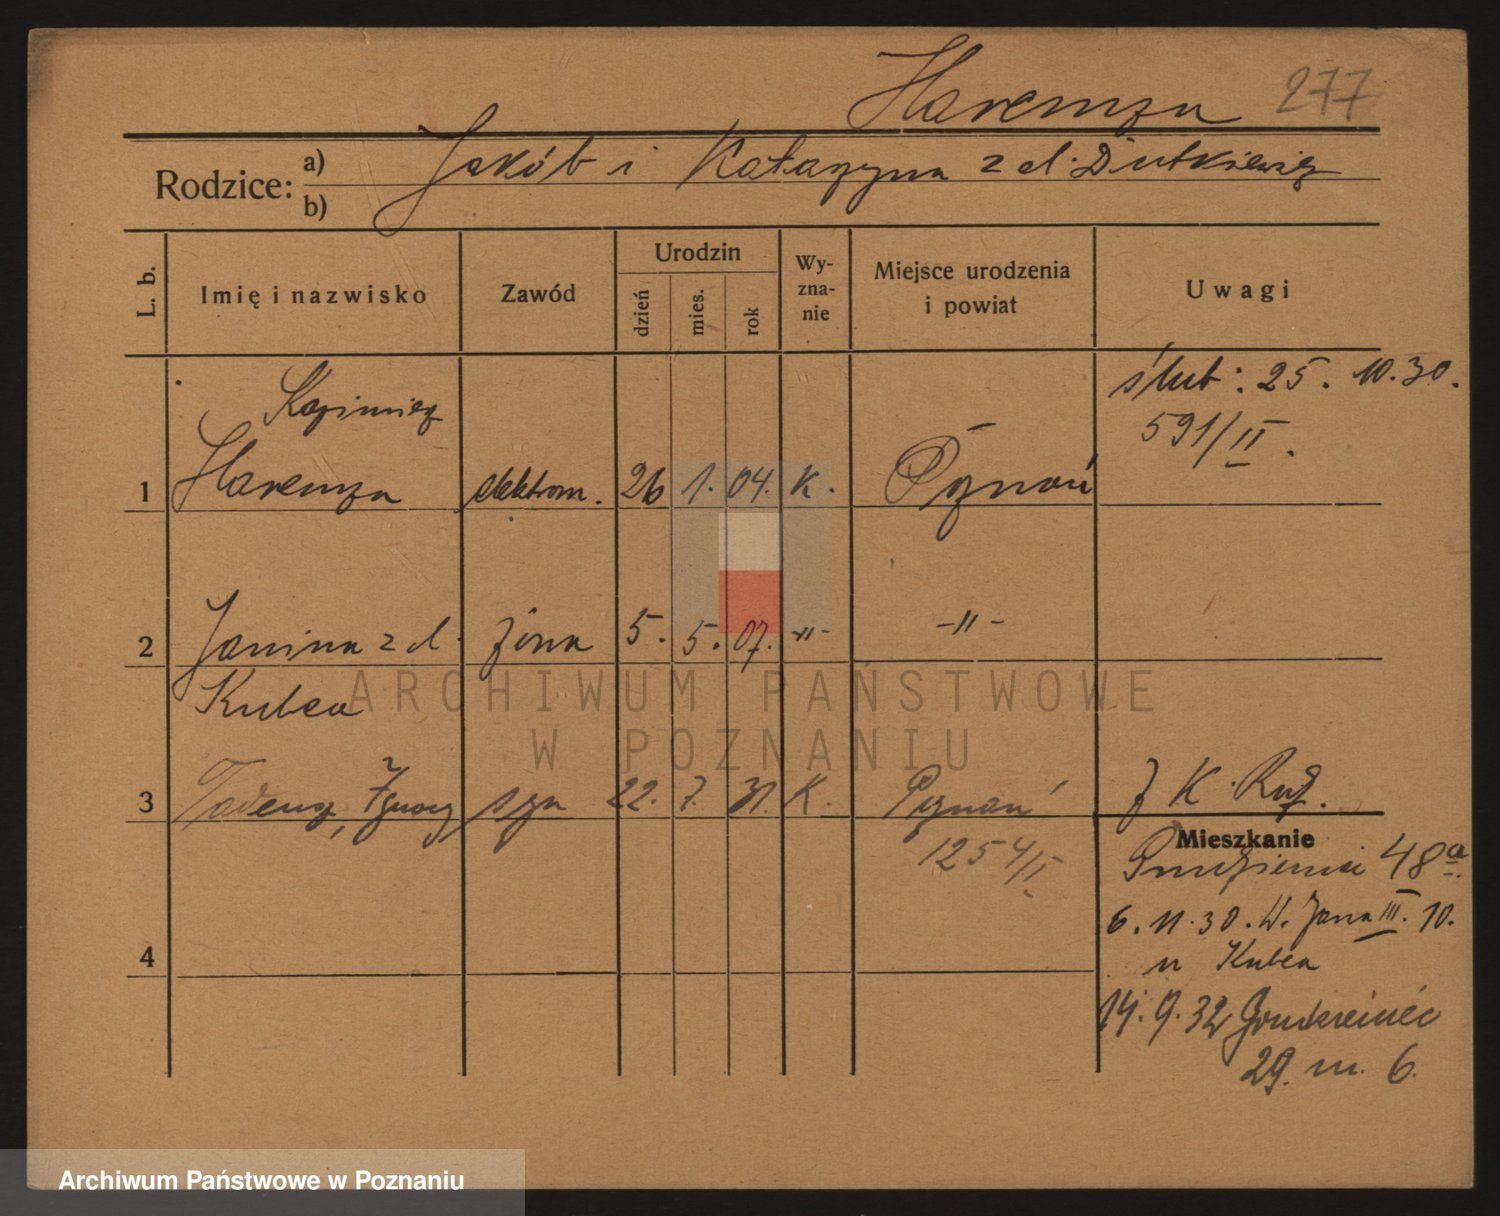 Haremza 277
Rodzice:
a) Jakób i Katarzyna z d. Dutkiewicz
b)
L. b.
Imię i nazwisko
Zawód
Urodzin
dzień
mies.
rok
Wy-
zna-
nie
Miejsce urodzenia
i powiat
Uwagi
ślub: 25. 10. 30.
591/II.
Kazimierz
1 Haremza elektrom. 26 1. 04. K. Poznań
2 Janina z d. żona 5. 5. 07. -"- -"-
Kubca
3 Tadeusz, Ignacy syn 22. 7. 31. K. Poznań
1254/I
Ż K. Ruż.
Mieszkanie
48a.
6. 11. 30. W. Jana III. 10.
u Kubca
4
14. 9. 32 Grudzieniec
29. m. 6.
ARCHIWUM PAŃSTWOWE
W POZNANIU
Archiwum Państwowe w Poznaniu